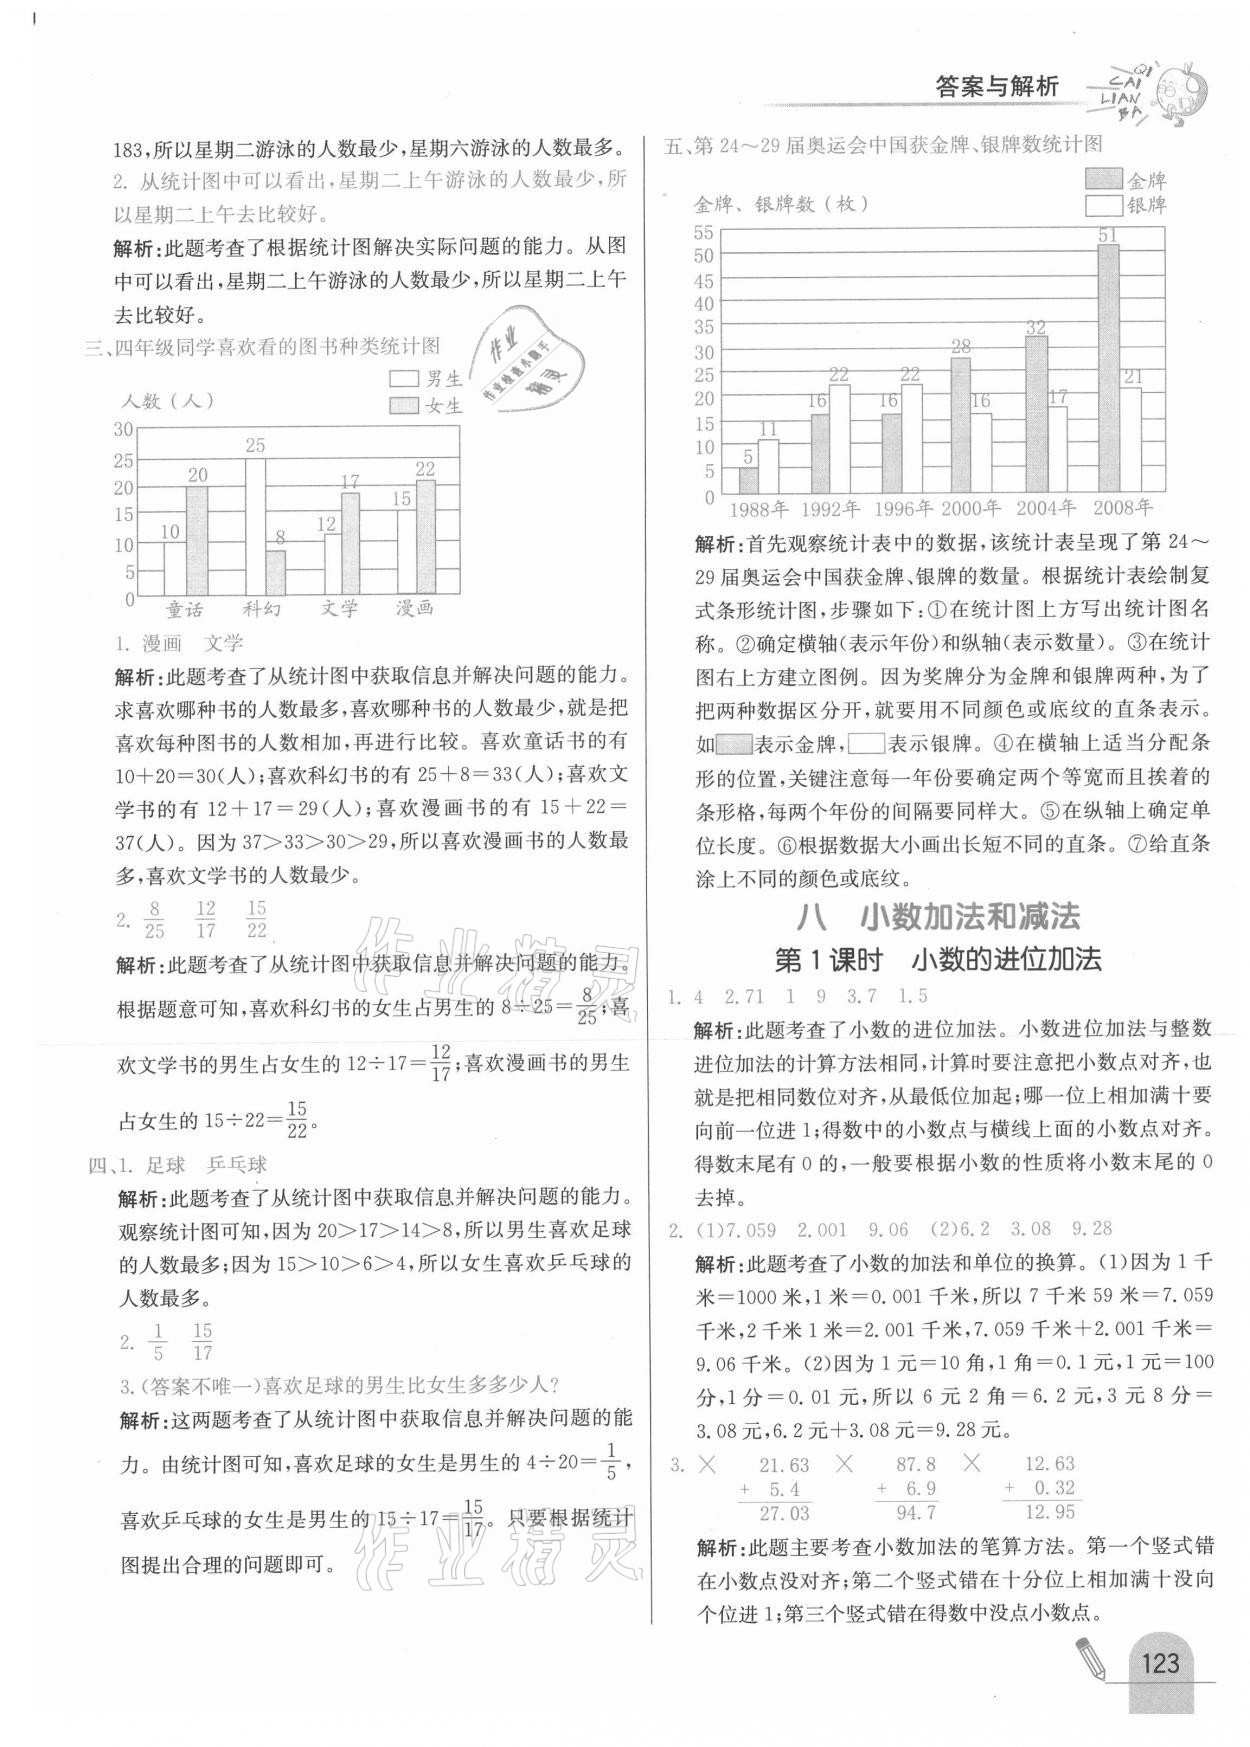 答案与解析
QI CAI LIAN BA
183,所以星期二游泳的人数最少,星期六游泳的人数最多。
2. 从统计图中可以看出,星期二上午游泳的人数最少,所
以星期二上午去比较好。
解析:此题考查了根据统计图解决实际问题的能力。从图
中可以看出,星期二上午游泳的人数最少,所以星期二上午
去比较好。
三、四年级同学喜欢看的图书种类统计图
男生
人数(人) 女生
30
25
20
15
10
5
0
10 20 25 8 12 17 15 22
童话 科幻 文学 漫画
作业
作业检查小助手
精灵
1. 漫画 文学
解析:此题考查了从统计图中获取信息并解决问题的能力。
求喜欢哪种书的人数最多,喜欢哪种书的人数最少,就是把
喜欢每种图书的人数相加,再进行比较。喜欢童话书的有
10+20=30(人);喜欢科幻书的有 25+8=33(人);喜欢文
学书的有 12+17=29(人);喜欢漫画书的有 15+22=
37(人)。因为 37>33>30>29,所以喜欢漫画书的人数最
多,喜欢文学书的人数最少。
2. 8/25 12/17 15/22
解析:此题考查了从统计图中获取信息并解决问题的能力。
根据题意可知,喜欢科幻书的女生占男生的 8÷25=8/25;喜
欢文学书的男生占女生的 12÷17=12/17;喜欢漫画书的男生
占女生的 15÷22=15/22。
作业精灵
四、1. 足球 乒乓球
解析:此题考查了从统计图中获取信息并解决问题的能力。
观察统计图可知,因为 20>17>14>8,所以男生喜欢足球
的人数最多;因为 15>10>6>4,所以女生喜欢乒乓球的
人数最多。
2. 1/5 15/17
3.(答案不唯一)喜欢足球的男生比女生多多少人?
解析:这两题考查了从统计图中获取信息并解决问题的能
力。由统计图可知,喜欢足球的女生是男生的 4÷20=1/5,
喜欢乒乓球的女生是男生的 15÷17=15/17。只要根据统计
图提出合理的问题即可。
作业精灵
五、第 24～29 届奥运会中国获金牌、银牌数统计图
金牌
金牌、银牌数(枚) 银牌
55
50
45
40
35
30
25
20
15
10
5
0
5 11 16 22 16 22 28 16 32 17 51 21
1988年 1992年 1996年 2000年 2004年 2008年
解析:首先观察统计表中的数据,该统计表呈现了第 24～
29 届奥运会中国获金牌、银牌的数量。根据统计表绘制复
式条形统计图,步骤如下:①在统计图上方写出统计图名
称。②确定横轴(表示年份)和纵轴(表示数量)。③在统计
图右上方建立图例。因为奖牌分为金牌和银牌两种,为了
把两种数据区分开,就要用不同颜色或底纹的直条表示。
如 表示金牌, 表示银牌。④在横轴上适当分配条
形的位置,关键注意每一年份要确定两个等宽而且挨着的
条形格,每两个年份的间隔要同样大。⑤在纵轴上确定单
位长度。⑥根据数据大小画出长短不同的直条。⑦给直条
涂上不同的颜色或底纹。
八 小数加法和减法
第 1 课时 小数的进位加法
1. 4 2.71 1 9 3.7 1.5
解析:此题考查了小数的进位加法。小数进位加法与整数
进位加法的计算方法相同,计算时要注意把小数点对齐,也
就是把相同数位对齐,从最低位加起;哪一位上相加满十要
向前一位进 1;得数中的小数点与横线上面的小数点对齐。
得数末尾有 0 的,一般要根据小数的性质将小数末尾的 0
去掉。
2. (1)7.059 2.001 9.06 (2)6.2 3.08 9.28
解析:此题考查了小数的加法和单位的换算。(1)因为 1 千
米=1000 米,1 米=0.001 千米,所以 7 千米 59 米=7.059
千米,2 千米 1 米=2.001 千米,7.059 千米+2.001 千米=
9.06 千米。(2)因为 1 元=10 角,1 角=0.1 元,1 元=100
分,1 分=0.01 元,所以 6 元 2 角=6.2 元,3 元 8 分=
3.08 元,6.2 元+3.08 元=9.28 元。
3. × 21.63 × 87.8 × 12.63
+ 5.4 + 6.9 + 0.32
27.03 94.7 12.95
解析:此题主要考查小数加法的笔算方法。第一个竖式错
在小数点没对齐;第二个竖式错在十分位上相加满十没向
个位进 1;第三个竖式错在得数中没点小数点。
123